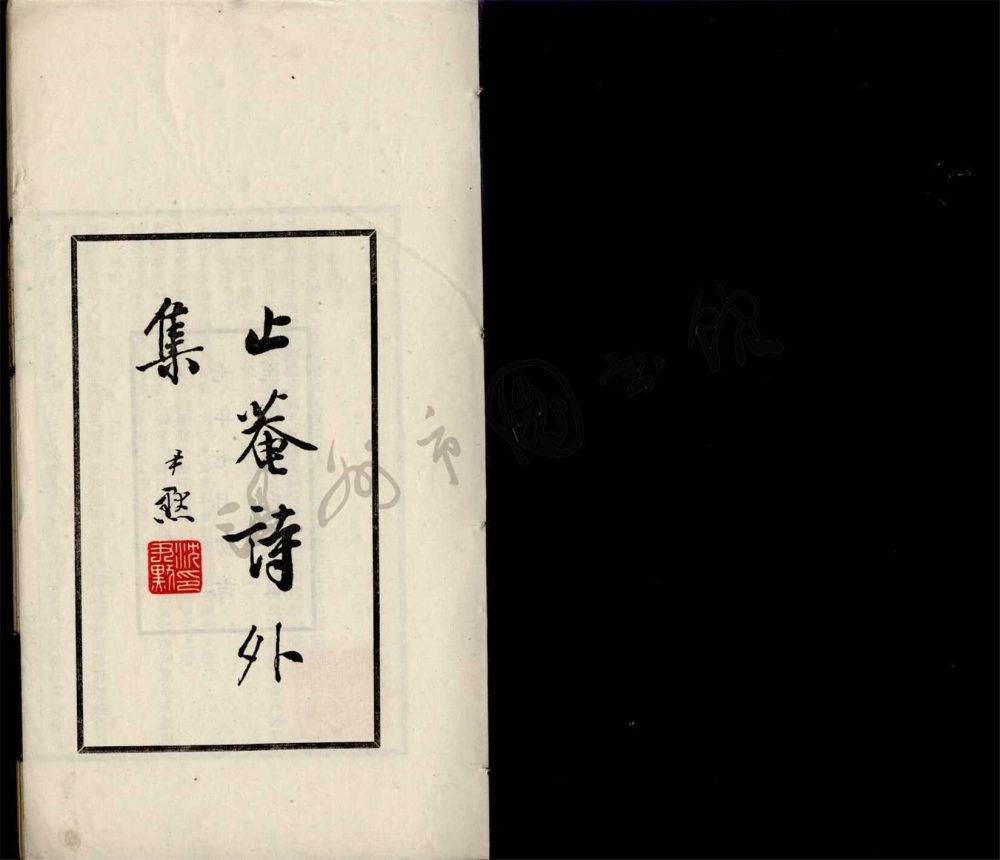 止菴詩外
集
尹默
沈尹默印
市圖書館